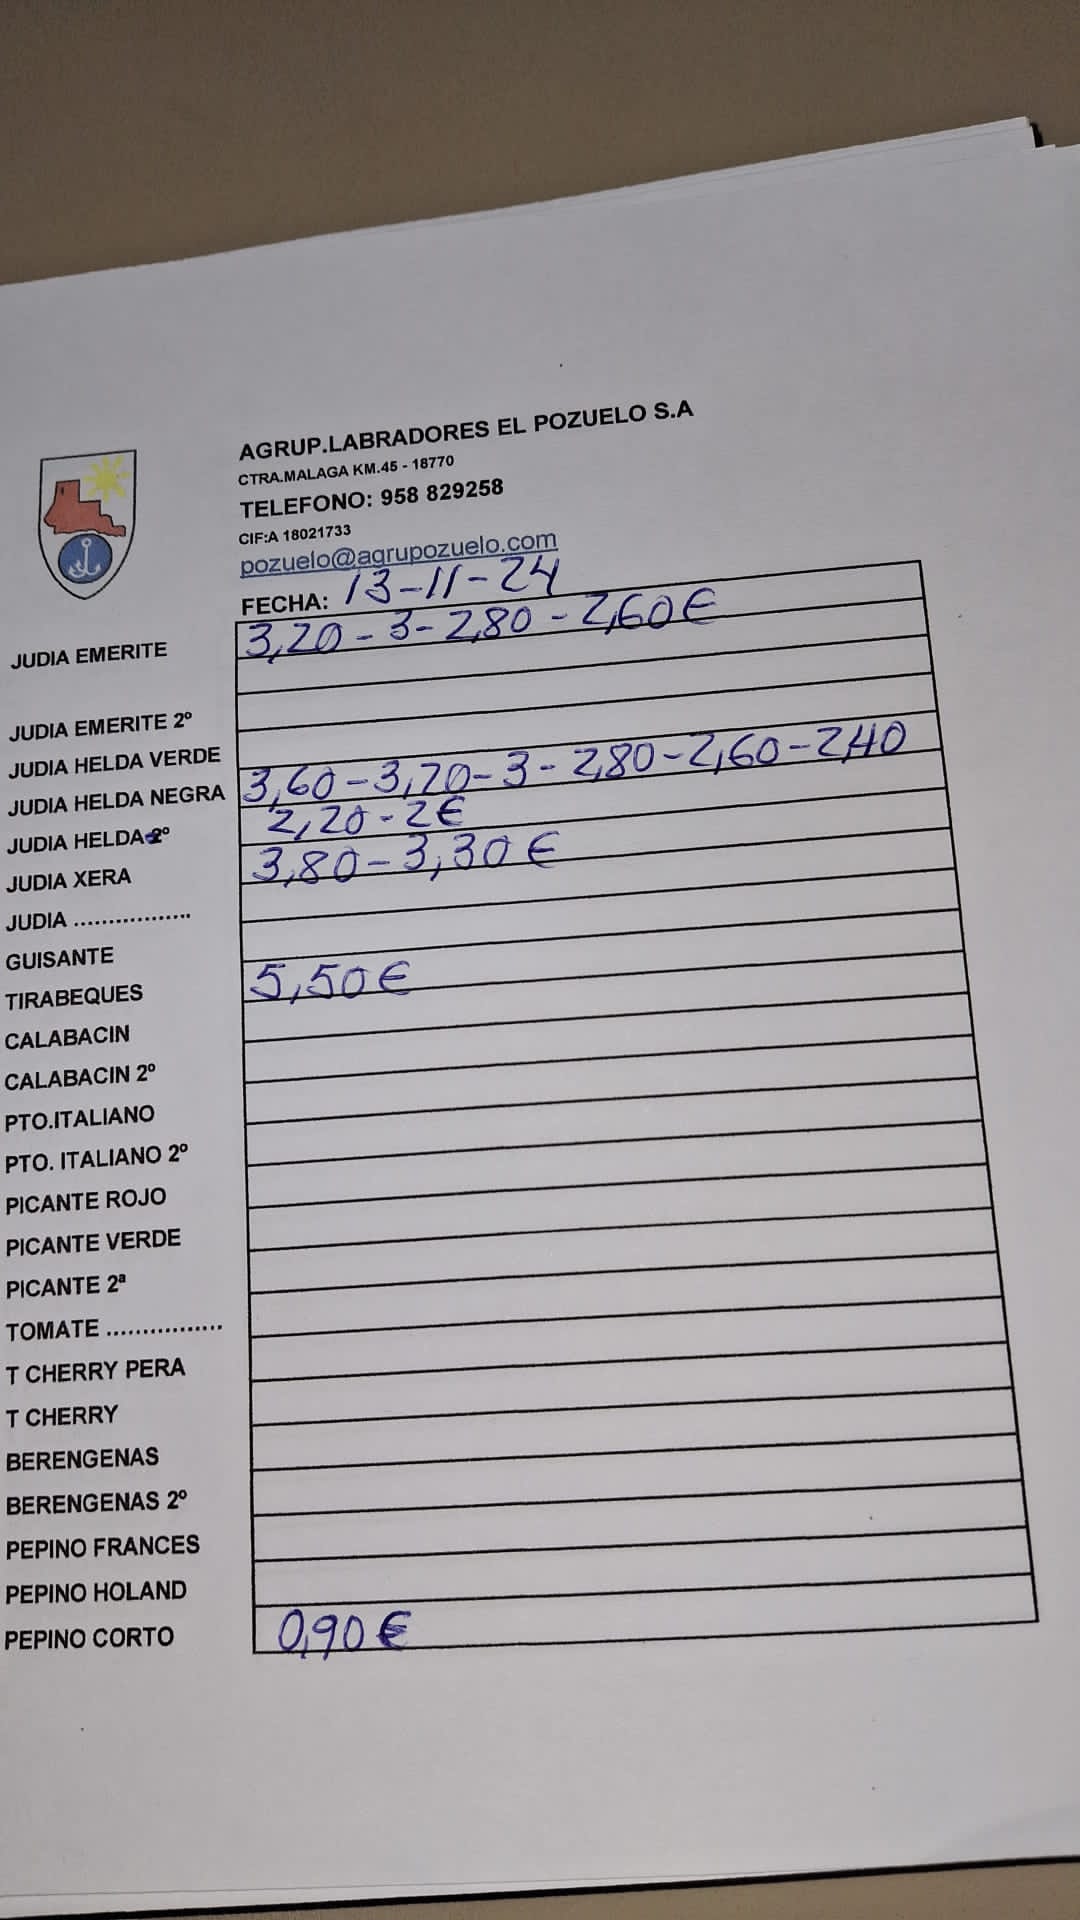 AGRUP.LABRADORES EL POZUELO S.A
CTRA.MALAGA KM.45 - 18770
TELEFONO: 958 829258
CIF:A 18021733
pozuelo@agrupozuelo.com
FECHA: 13-11-24
JUDIA EMERITE 3,20 - 3 - 2,80 - 2,60€
JUDIA EMERITE 2º
JUDIA HELDA VERDE
JUDIA HELDA NEGRA 3,60 - 3,20 - 3 - 2,80 - 2,60 - 2,40
JUDIA HELDA 2º 2,20 - 2€
JUDIA XERA 3,80 - 3,30€
JUDIA .................
GUISANTE
TIRABEQUES 5,50€
CALABACIN
CALABACIN 2º
PTO.ITALIANO
PTO. ITALIANO 2º
PICANTE ROJO
PICANTE VERDE
PICANTE 2ª
TOMATE ................
T CHERRY PERA
T CHERRY
BERENGENAS
BERENGENAS 2º
PEPINO FRANCES
PEPINO HOLAND
PEPINO CORTO 0,90€